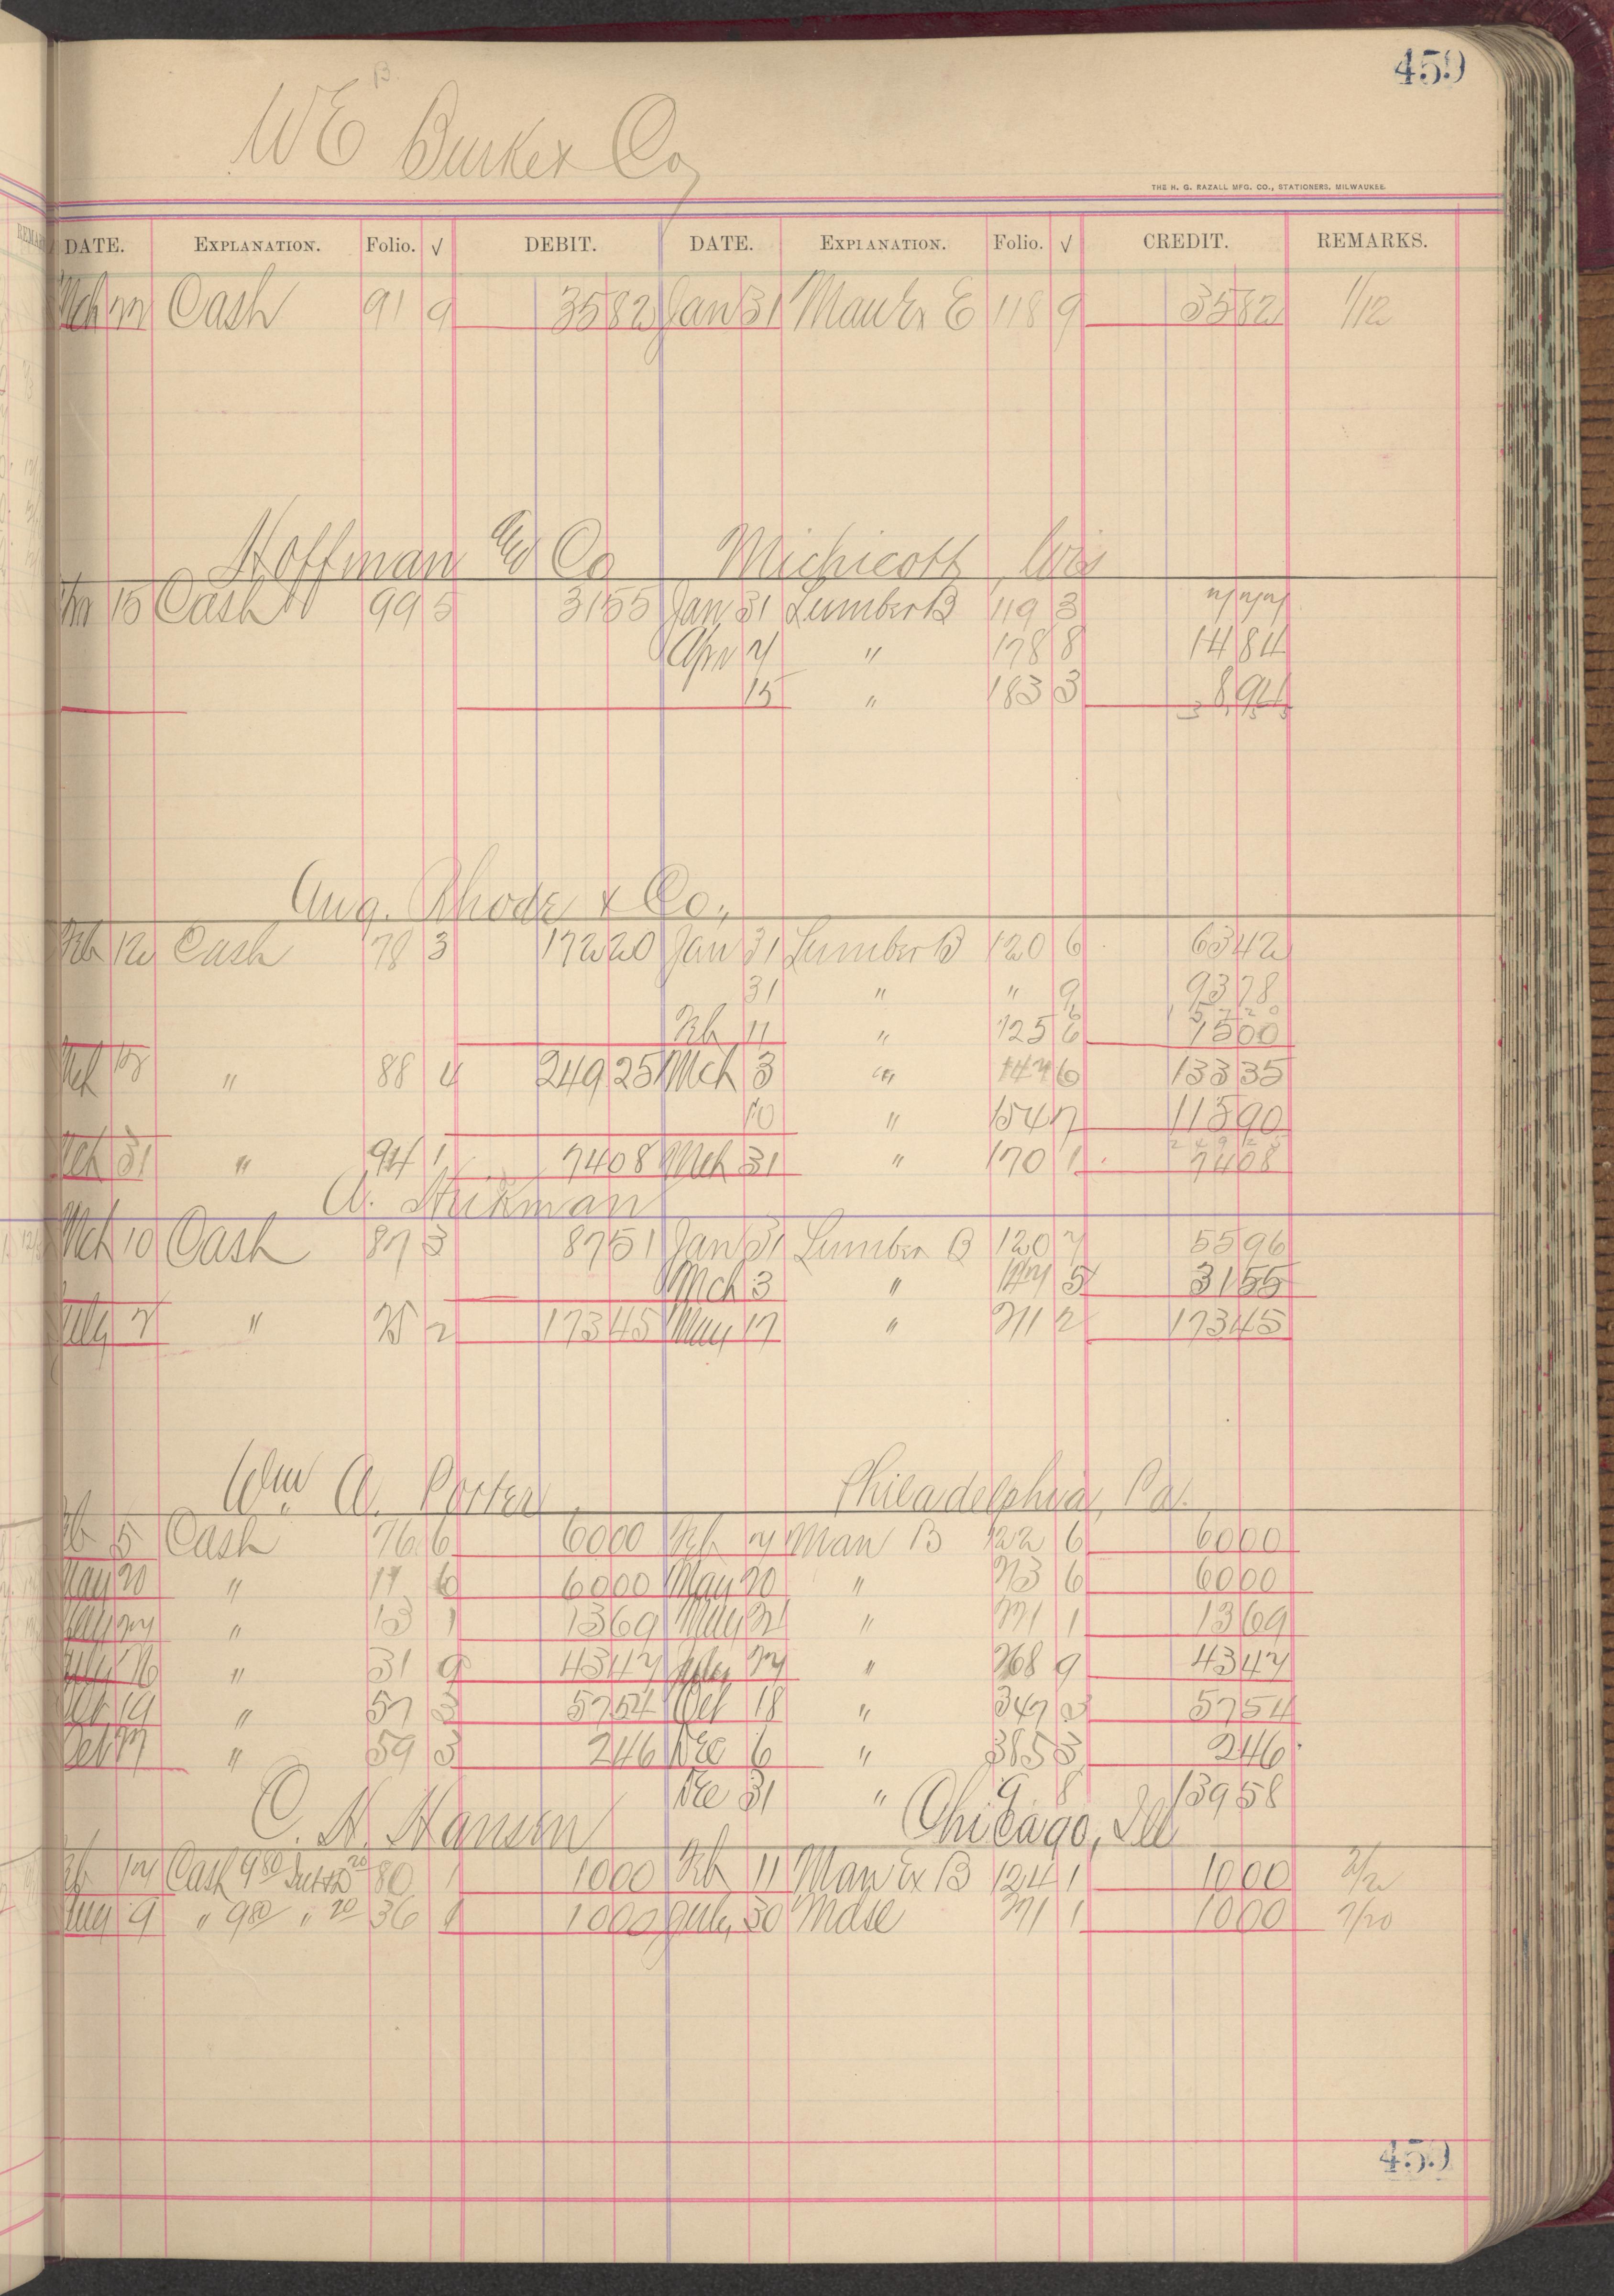 459
B.
W E Burke & Co
THE H. G. RAZALL MFG. CO., STATIONERS, MILWAUKEE.
DATE. EXPLANATION. Folio. √ DEBIT. DATE. EXPLANATION. Folio. √ CREDIT. REMARKS.
Mch 22 Cash 91 9 3582 Jan 31 Man Ex E 118 9 3582 1/12
Hoffman & Co Michicott, Wis
15 Cash 99 5 3155 Jan 31 Lumber B 119 3 777
Apr 7 " 178 8 1484
15 " 183 3 894
Aug. Rhode & Co.,
Feb 12 Cash 78 3 17220 Jan 31 Lumber B 120 6 6342
31 " " 9 9378
Feb 11 " 125 6 1500
Mch 13 " 88 4 24925 Mch 3 " 147 6 13335
10 " 154 7 11590
Mch 31 " 94 1 7408 Mch 31 " 170 1 7408
A. Stickman
Mch 10 Cash 87 3 8751 Jan 31 Lumber B 120 7 5596
Mch 3 " 147 5 3155
July 7 " 25 2 17345 May 17 " 211 2 17345
Wm A. Porter Philadelphia, Pa.
Feb 5 Cash 76 6 6000 Feb 7 Man B 122 6 6000
May 20 " 17 6 6000 May 20 " 213 6 6000
" 13 1 1369 May 21 " 1 1369
16 " 31 9 4347 " 268 9 4347
Oct 19 " 57 3 5754 Oct 18 " 347 3 5754
" 59 3 246 Dec 6 " 385 3 246
Dec 31 " 9 8 13958
C. N. Hansen Chicago, Ill
Feb 14 Cash 9 80 20 80 1 1000 Feb 11 Man Ex B 124 1 1000 2/2
Aug 9 " 9 80 " 20 36 1 1000 July 30 Mdse 1 1000 7/20
459